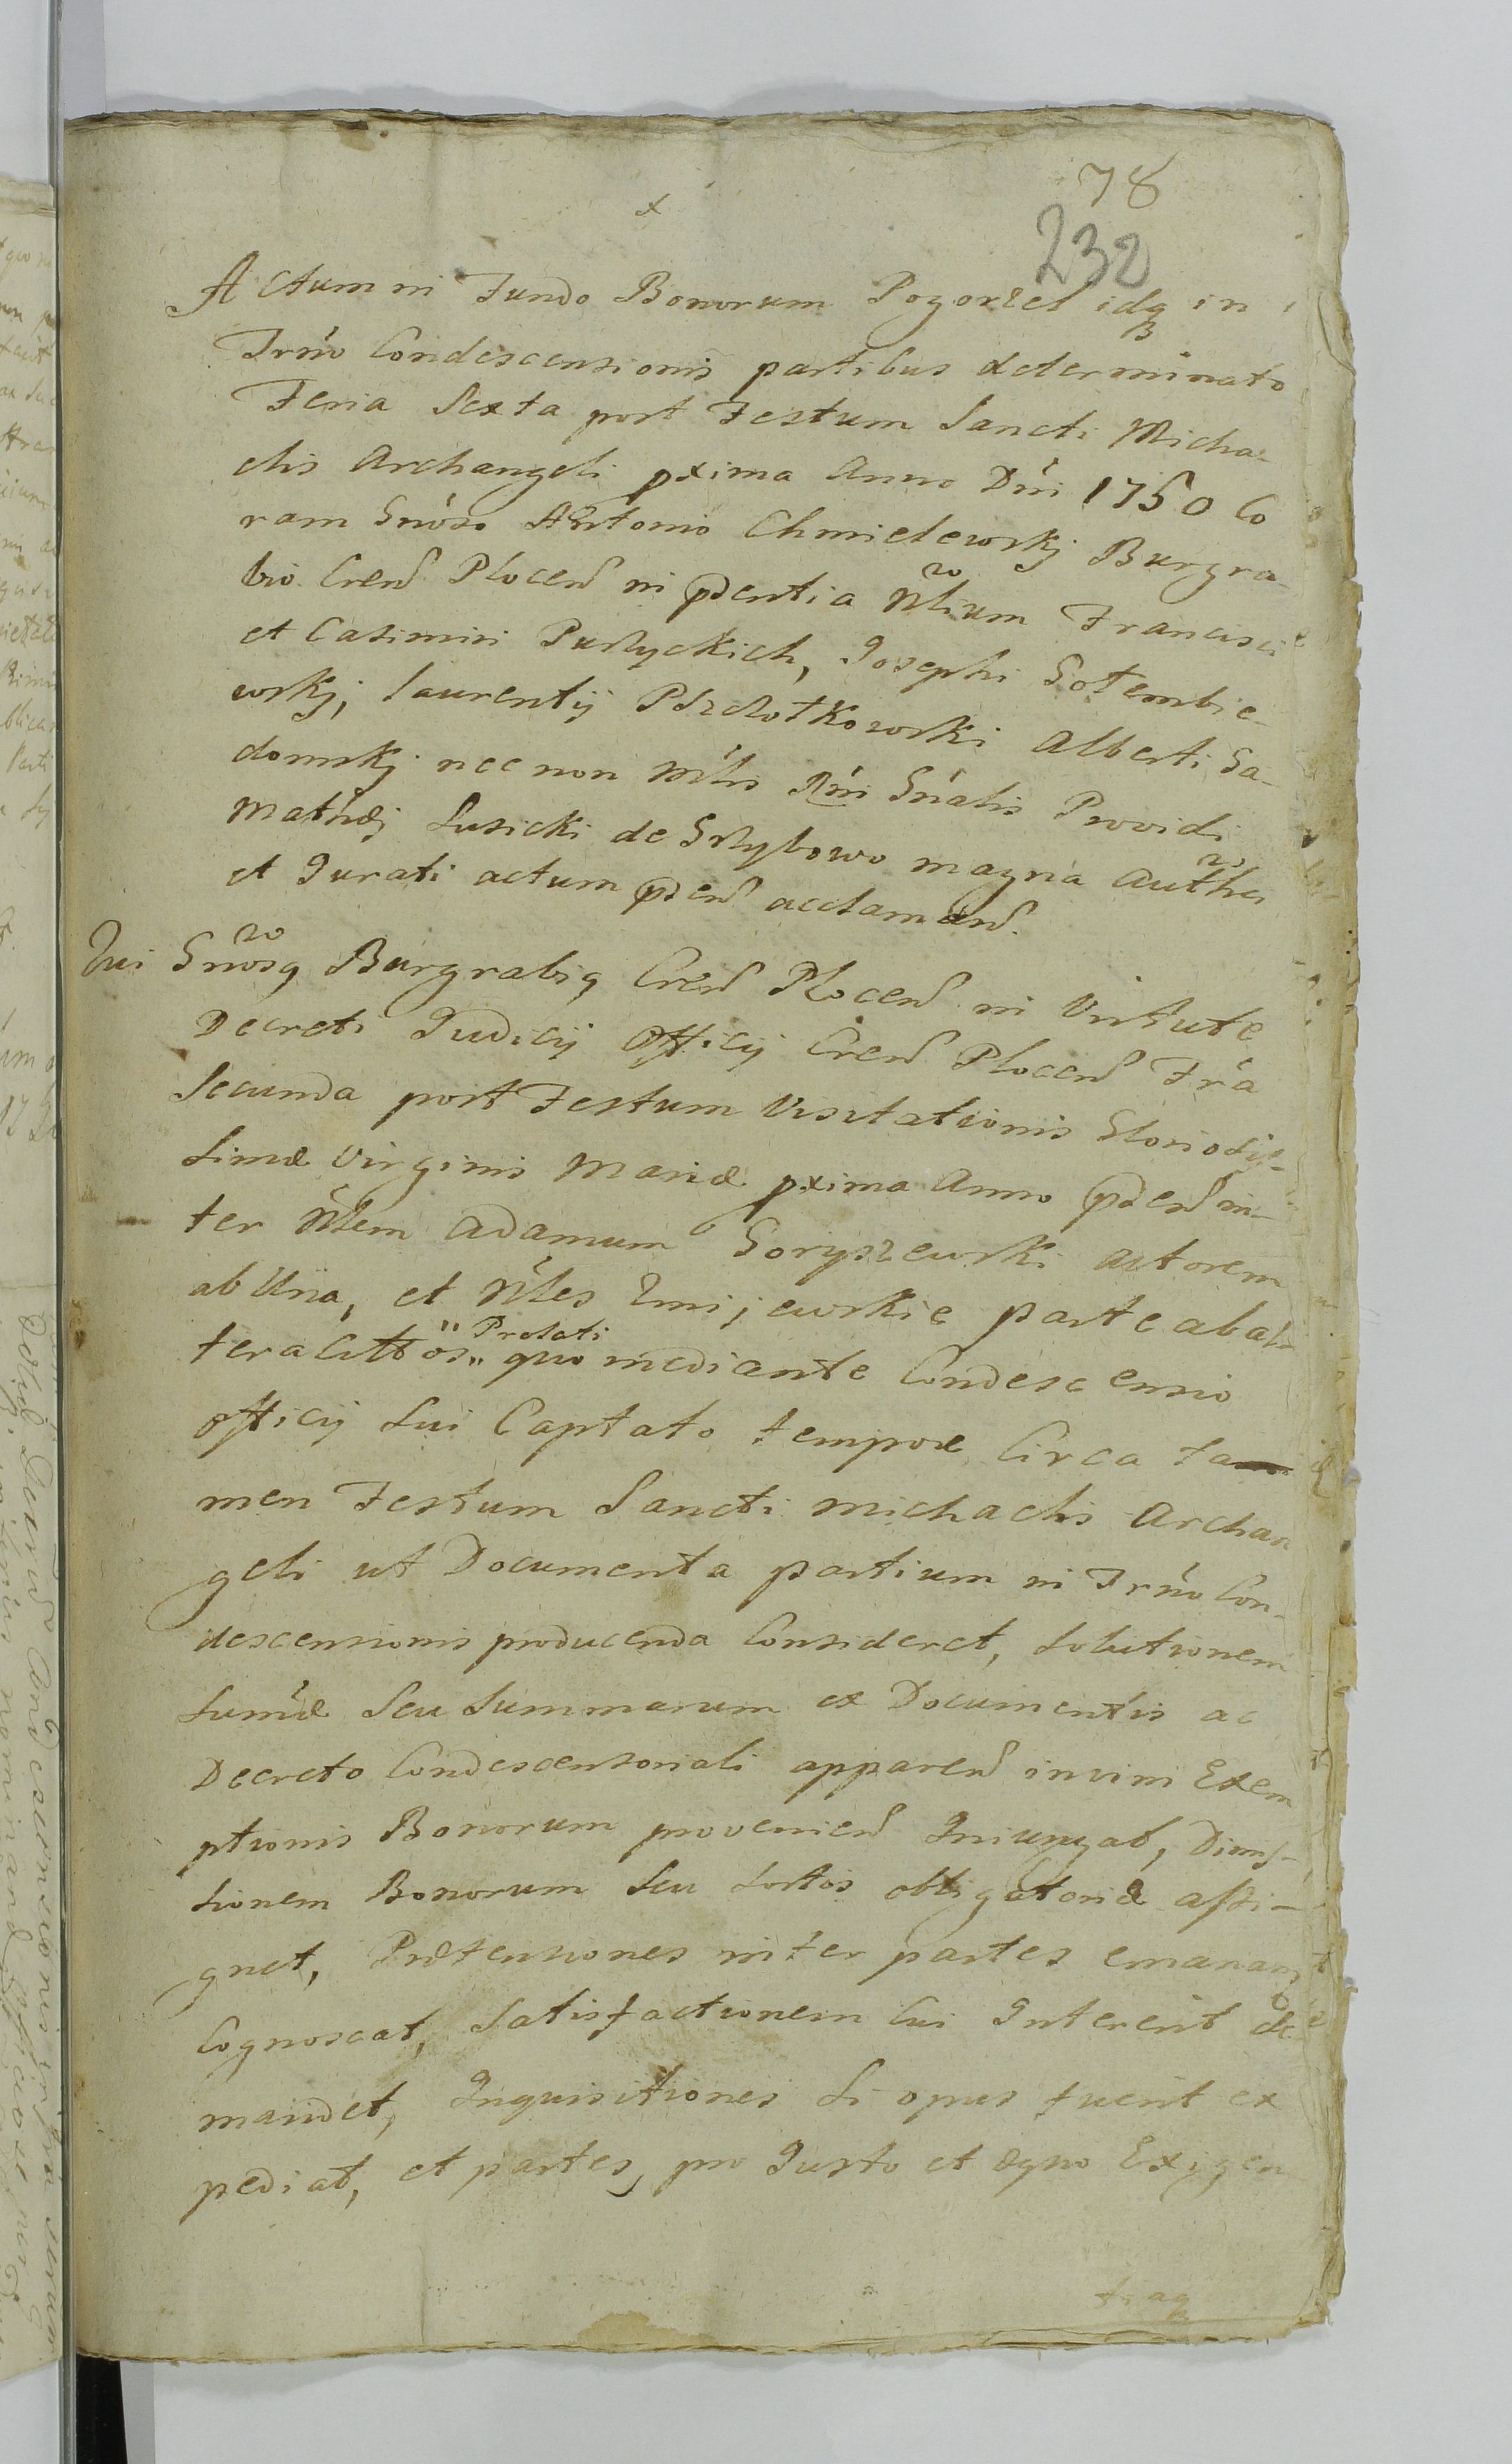 78
x
232
Actum in Fundo Bonorum Pogorzel idq in
Trno Condescensionis partibus determinato
Feria Sexta post Festum Sancti Micha-
elis Archangeli pxima Anno Dni 1750 Co
ram Gnoso Antonio Chmielewskj Burgra-
bio Cren Plocen in pdentia Nlium Francisci
et Casimiri Puslyckich, Josephi Gołembie-
wskj, Laurentij Pszczołkowski Alberti Ga-
domskj nec non Mlis Rni Gnalis Providi
Mathæj Lusicki de Grzybowo magna Autha
et Jurati actum pden acclaman.
Qui Gnosq Burgrabiq Cren Plocen in Virtute
Decreti Judicij Officij Cren Plocen Fria
Secunda post Festum Visitationis Gloriosis-
simæ Virginis Mariæ pxima Anno pden in-
ter Nlem Adamum Goryszewski actorem
ab Una, et Nles Zmijewskie parte ab al-
tera Cittos „ Prolati
quo mediante Condescensio
officij sui Captato tempore Circa ta
men Festum Sancti Michaelis Archan
geli ut Documenta partium in Trno Con-
descensionis producenda Consideret, solutionem
sumæ seu summarum ex Documentis ac
Decreto Condescensoriali apparen in vim Exem
ptionis Bonorum provenien Injungat, Dimis-
sionem Bonorum seu sortis obligatoriæ assi-
gnet, Prætensiones inter partes emanan
Cognoscat, satisfactionem Cui Intererit de
mandet, Inquisitiones si opus fuerit ex
pediat, et partes, pro Justo et æquo Exigen
tiaq